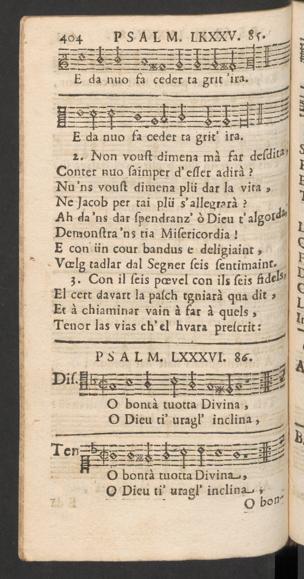 404 PSALM. LXXXV. 85.
E da nuo fa ceder ta grit 'ira.
E da nuo fa ceder ta grit' ira.
2. Non voust dimena mà far desdita,
Conter nuo saimper d'esser adirà ?
Nu'ns voust dimena plü dar la vita ,
Ne Jacob per tai plü s'allegrarà ?
Ah da'ns dar spendranz' ò Dieu t'algorda,
Demonstra'ns tia Misericordia !
E con ün cour bandus e deligiaint ,
Vœlg tadlar dal Segner seis sentimaint.
3. Con il seis pœvel con ils seis fidels,
El cert davart la pasch tgniarà qua dit ,
Et à chiaminar vain à far à quels ,
Tenor las vias ch'el hvara prescrit:
PSALM. LXXXVI. 86.
Dis.
O bontà tuotta Divina ,
O Dieu ti' uragl' inclina ,
Ten
O bontà tuotta Divina ,
O Dieu ti' uragl' inclina ,
O bon-